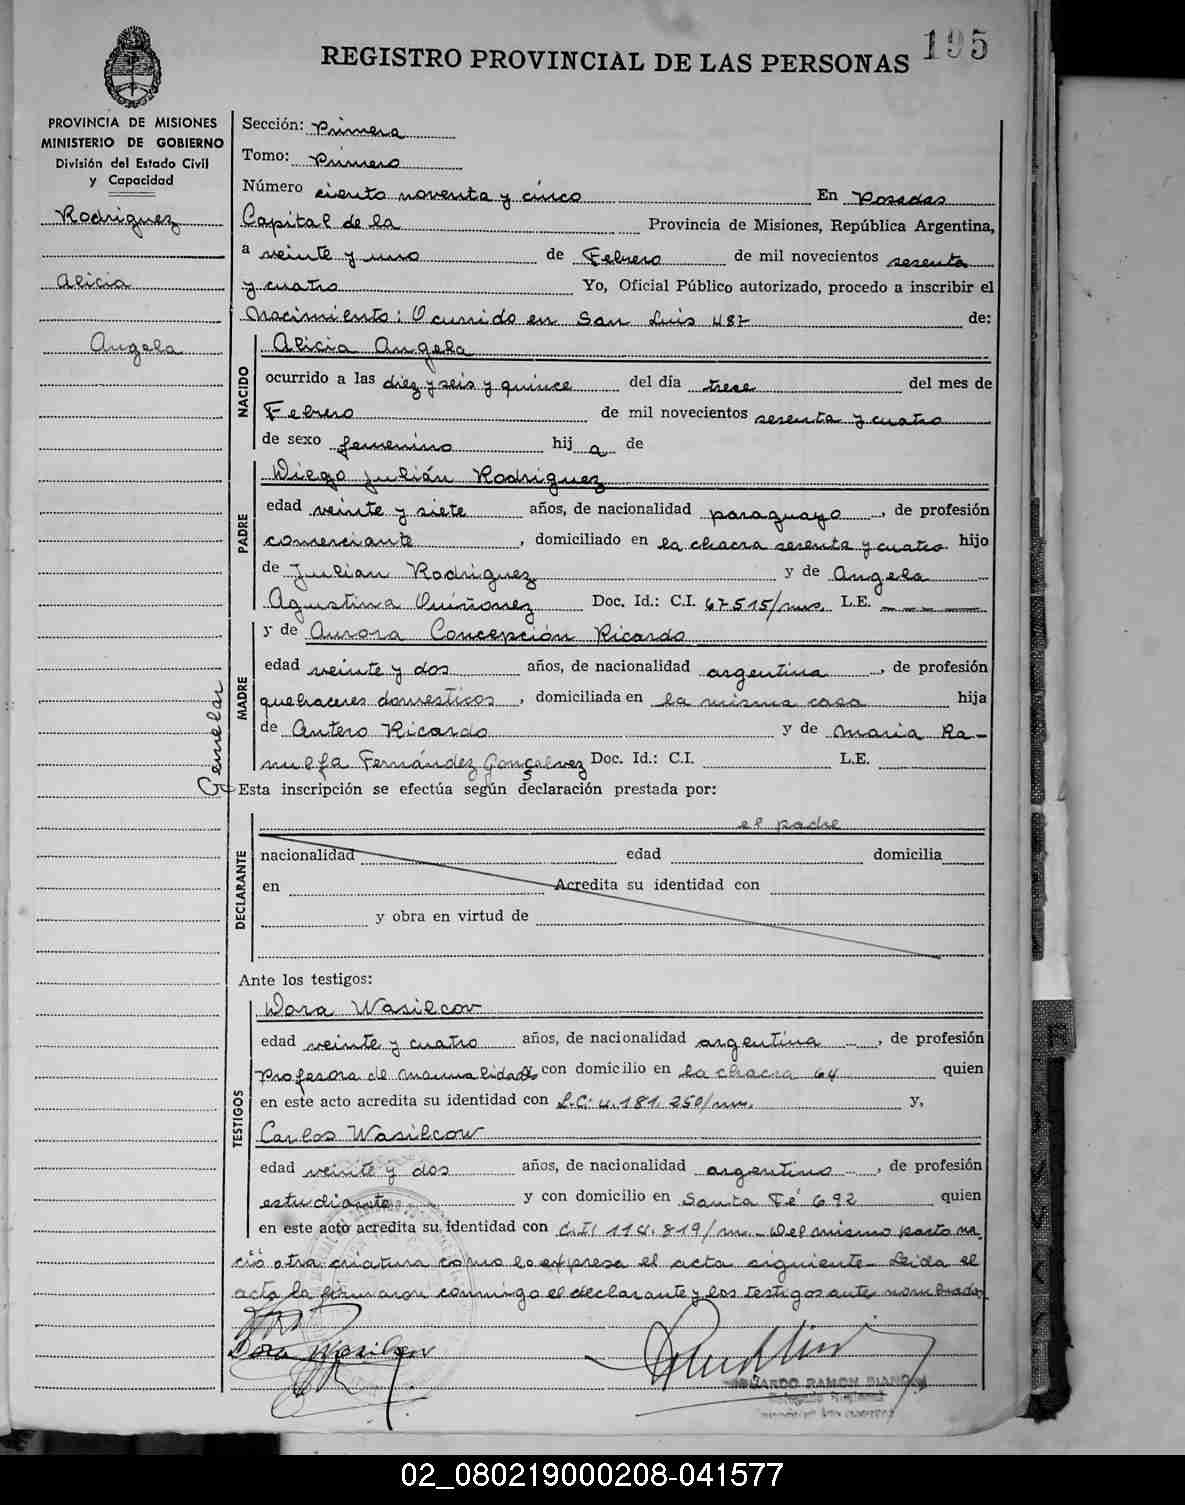 195
REGISTRO PROVINCIAL DE LAS PERSONAS
PROVINCIA DE MISIONES
MINISTERIO DE GOBIERNO
División del Estado Civil
y Capacidad
Rodriguez
Alicia
Angela
Gemelar
Sección: Primera
Tomo: Primero
Número ciento noventa y cinco En Posadas
Capital de la Provincia de Misiones, República Argentina,
a veinte y uno de Febrero de mil novecientos sesenta
y cuatro Yo, Oficial Público autorizado, procedo a inscribir el
Nacimiento: Ocurrido en San Luis 487 de:
NACIDO
Alicia Angela
ocurrido a las diez y seis y quince del día trece del mes de
Febrero de mil novecientos sesenta y cuatro
de sexo femenino hij a de
PADRE
Diego Julián Rodriguez
edad veinte y siete años, de nacionalidad paraguayo, de profesión
comerciante, domiciliado en la chacra sesenta y cuatro hijo
de Julian Rodriguez y de Angela
Agustina Quiñonez Doc. Id.: C.I. 67515/mns. L.E.
MADRE
y de Aurora Concepción Ricardo
edad veinte y dos años, de nacionalidad argentina, de profesión
quehaceres domesticos, domiciliada en la misma casa hija
de Antero Ricardo y de Maria Ra-
mulfa Fernández Gonçalvez Doc. Id.: C.I. L.E.
Esta inscripción se efectúa según declaración prestada por:
DECLARANTE
el padre
nacionalidad edad domicilia
en Acredita su identidad con
y obra en virtud de
Ante los testigos:
TESTIGOS
Dora Wasilcov
edad veinte y cuatro años, de nacionalidad argentina, de profesión
Profesora de manualidades con domicilio en la chacra 64 quien
en este acto acredita su identidad con L.C. 4.181.250/mn. y,
Carlos Wasilcow
edad veinte y dos años, de nacionalidad argentino, de profesión
estudiante y con domicilio en Santa Fé 692 quien
en este acto acredita su identidad con C.I. 114.819/m.- Del mismo parto na-
ció otra criatura como lo expresa el acta siguiente- Leida el
acta la firmaron conmigo el declarante y los testigos antes nombrados
Dora Wasilcov
EDUARDO RAMON BIANCHI
02_080219000208-041577